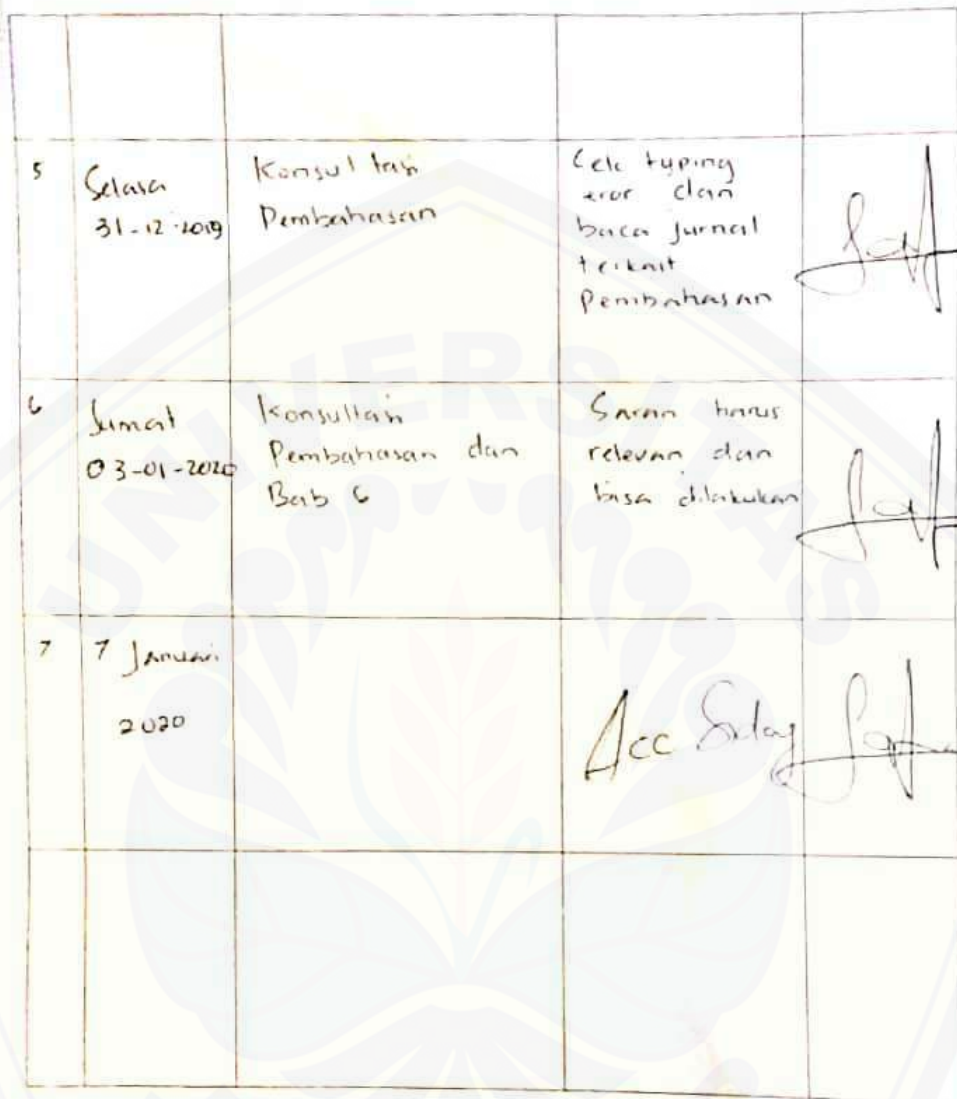 5
Selasa
31-12-2019
Konsultasi
Pembahasan
Cek typing
eror dan
baca jurnal
terkait
Pembahasan
6
Jumat
03-01-2020
Konsultasi
Pembahasan dan
Bab 6
Saran harus
relevan dan
bisa dilakukan
7
7 Januari
2020
Acc Sidang
UNIVERSITAS